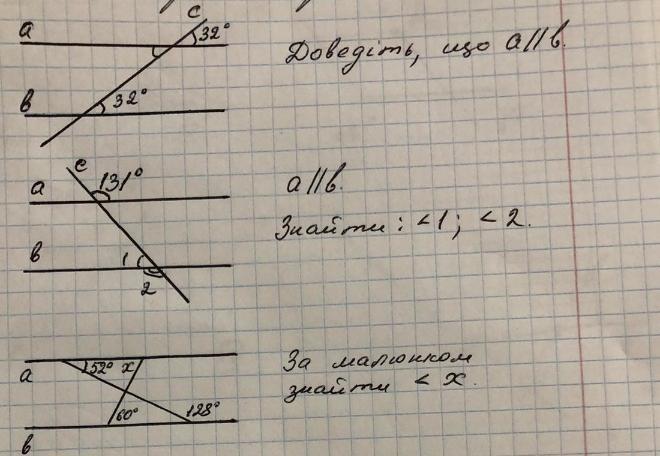 c
a 32°
b 32°
Доведіть, що a||b.
c
131°
a
b 1
2
a||b.
Знайти: <1; <2.
a 152° x
60° 128°
b
За малюнком
знайти < x.